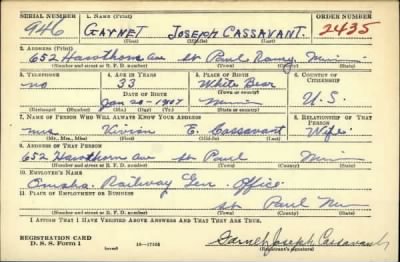 SERIAL NUMBER 1. NAME (Print) ORDER NUMBER
946 GARNET JOSEPH CASSAVANT. 2435
(First) (Middle) (Last)
2. ADDRESS (Print)
652 Hawthorn Ave St Paul Ramy Minn
(Number and street or R. F. D. number) (Town) (County) (State)
3. TELEPHONE 4. AGE IN YEARS 5. PLACE OF BIRTH 6. COUNTRY OF CITIZENSHIP
no 33 White Bear
DATE OF BIRTH (Town or county)
Jan 20-1907 Minn U.S.
(Exchange) (Number) (Mo.) (Day) (Yr.) (State or country)
7. NAME OF PERSON WHO WILL ALWAYS KNOW YOUR ADDRESS 8. RELATIONSHIP OF THAT PERSON
Mrs Vivian E. Cassavant Wife
(Mr., Mrs., Miss) (First) (Middle) (Last)
9. ADDRESS OF THAT PERSON
652 Hawthorn Ave St Paul Minn
(Number and street or R. F. D. number) (Town) (County) (State)
10. EMPLOYER'S NAME
Omaha Railway Gen. Office
11. PLACE OF EMPLOYMENT OR BUSINESS
St Paul Minn
(Number and street or R. F. D. number) (Town) (County) (State)
I AFFIRM THAT I HAVE VERIFIED ABOVE ANSWERS AND THAT THEY ARE TRUE.
REGISTRATION CARD
D. S. S. Form 1 (over) 16-17105 Garnet Joseph Cassavant
(Registrant's signature)